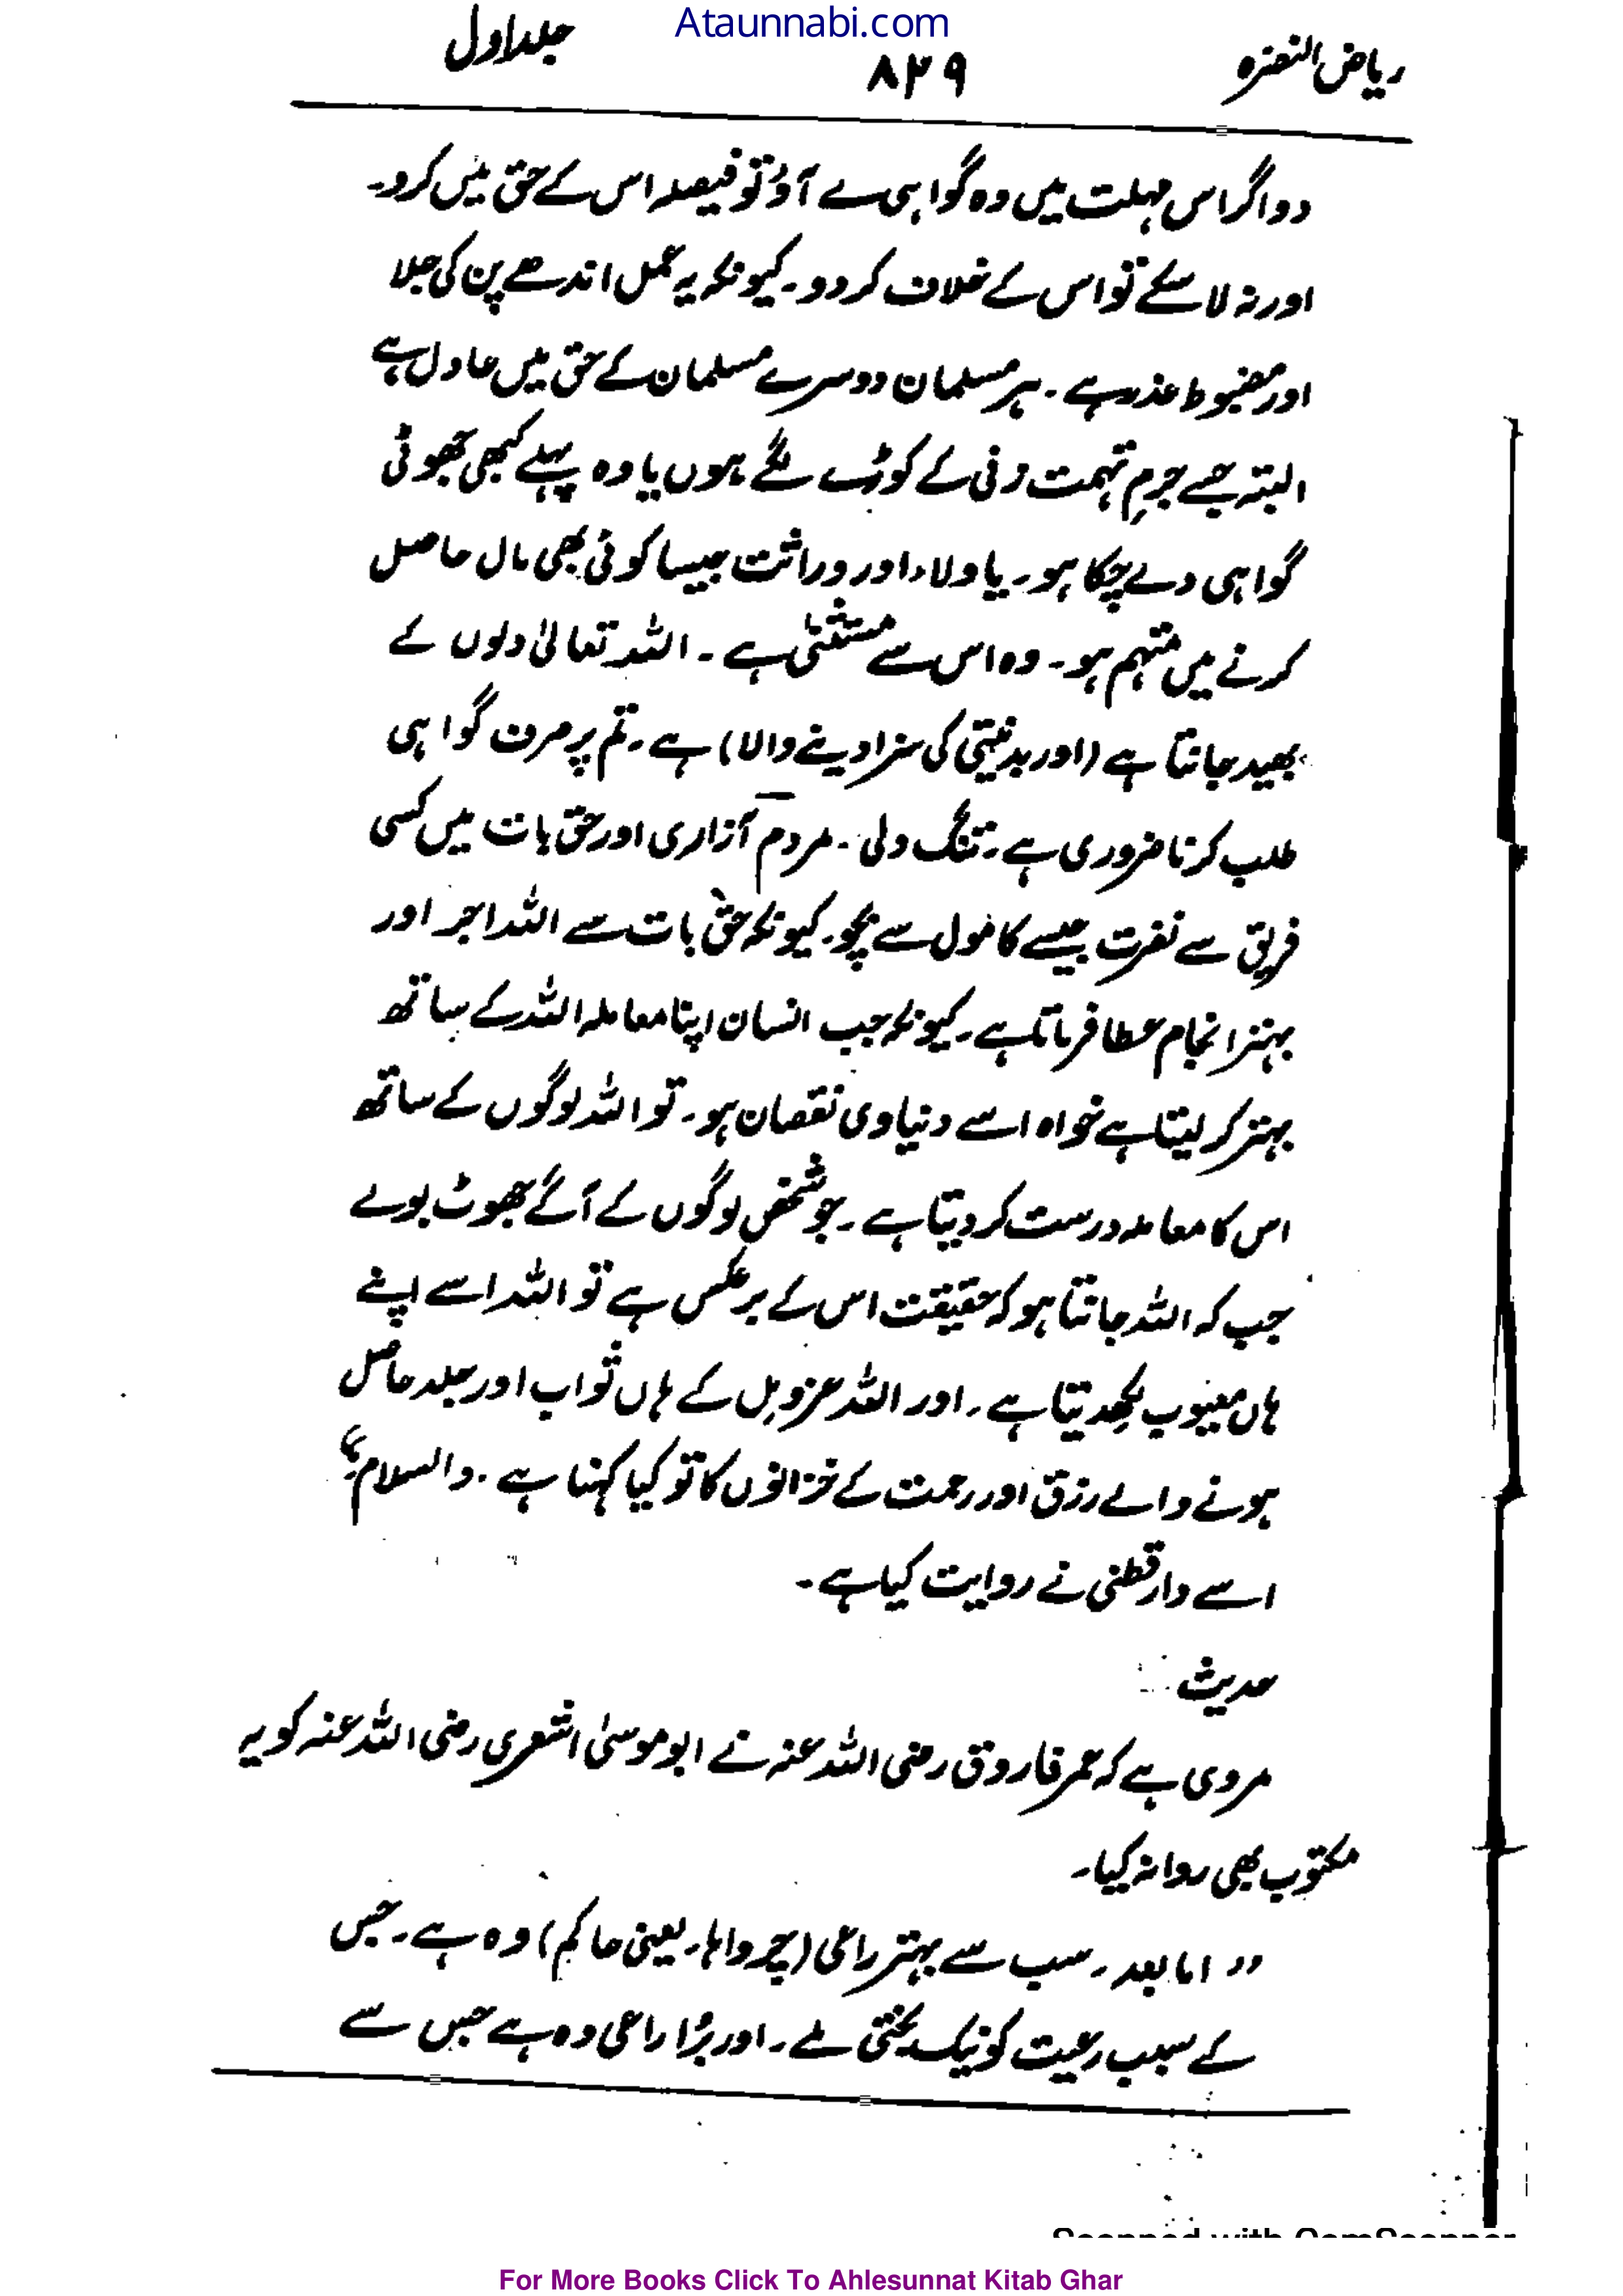 Ataunnabi.com
ریاض النضرہ ۸۳۹ جلد اول
دو اگر اس مہلت میں وہ گواہی لے آؤ تو فیصلہ اس کے حق میں کر دو۔
اور نہ لا سکے تو اس کے خلاف کر دو۔ کیونکہ یہ عمل اندھے پن کی جلا
اور مضبوط عذر ہے۔ ہر مسلمان دوسرے مسلمان کے حق میں عادل ہے
البتہ جسے جرمِ تہمت زنی کے کوڑے لگے ہوں یا وہ پہلے کبھی جھوٹی
گواہی دے چکا ہو۔ یا ولاء اور وراثت جیسا کوئی بھی مال حاصل
کرنے میں متہم ہو۔ وہ اس سے مستثنیٰ ہے۔ اللہ تعالیٰ دلوں کے
بھید جانتا ہے (اور بدنیتی کی سزا دینے والا) ہے۔ تم پر صرف گواہی
طلب کرنا ضروری ہے۔ تنگ دلی۔ مردم آزاری اور حق بات میں کسی
فریق سے نفرت جیسے کاموں سے بچو۔ کیونکہ حق بات سے اللہ اجر اور
بہتر انجام عطا فرماتا ہے۔ کیونکہ جب انسان اپنا معاملہ اللہ کے ساتھ
بہتر کر لیتا ہے خواہ اسے دنیاوی نقصان ہو۔ تو اللہ لوگوں کے ساتھ
اس کا معاملہ درست کر دیتا ہے۔ جو شخص لوگوں کے آگے جھوٹ بولے
جب کہ اللہ جانتا ہو کہ حقیقت اس کے برعکس ہے تو اللہ اسے اپنے
ہاں معیوب لکھ دیتا ہے۔ اور اللہ عزوجل کے ہاں ثواب اور جلد حاصل
ہونے والے رزق اور رحمت کے خزانوں کا تو کیا کہنا ہے۔ والسلام"
اسے دارقطنی نے روایت کیا ہے۔
حدیث
مروی ہے کہ عمر فاروق رضی اللہ عنہ نے ابو موسیٰ اشعری رضی اللہ عنہ کو یہ
مکتوب بھی روانہ کیا۔
"اما بعد۔ سب سے بہتر راعی (چرواہا۔ یعنی حاکم) وہ ہے۔ جس
کے سبب رعیت کو نیک بختی ملے۔ اور بڑا راعی وہ ہے جس سے
Scanned with CamScanner
For More Books Click To Ahlesunnat Kitab Ghar